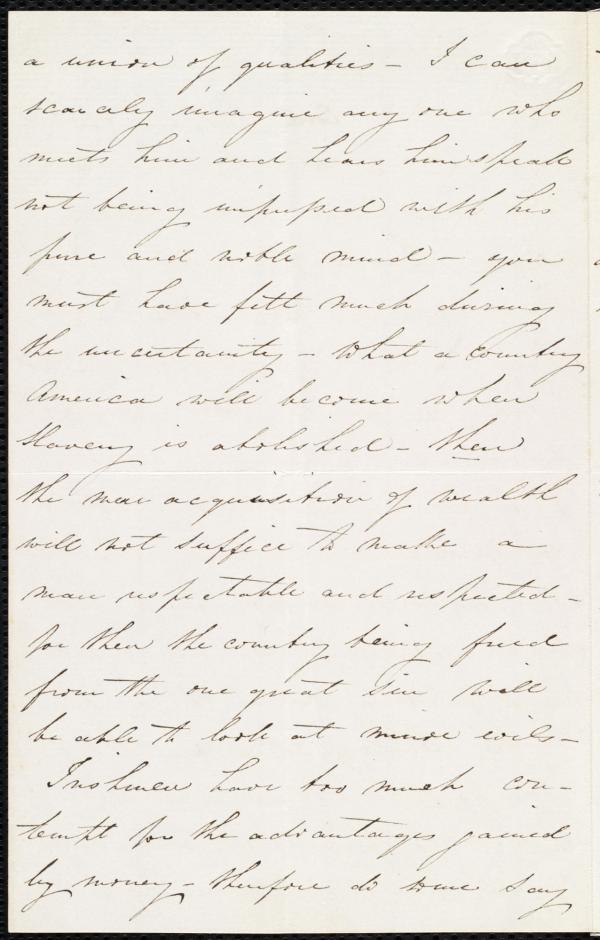 a union of qualities – I can
scarcely imagine any one who
meets him and hears him speak
not being impressed with his
pure and noble mind – you
must have felt much during
the uncertainty – What a country
America will become when
Slavery is abolished – then
the mere acquisition of wealth
will not suffice to make a
man respectable and respected –
for then the country being freed
from the one great sin will
be able to look at minor evils –
Irishmen have too much con-
tempt for the advantages gained
by money – therefore do some say